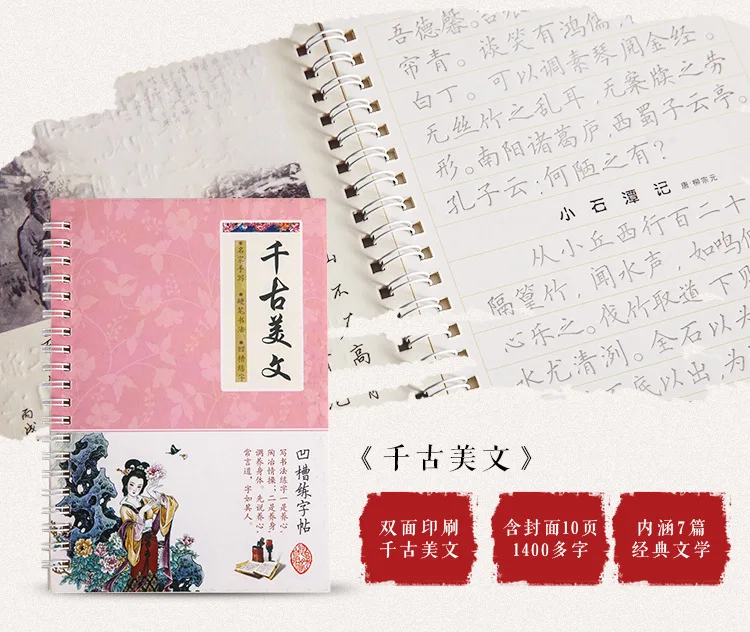 吾德馨。
帘青。谈笑有鸿儒，
白丁。可以调素琴阅金经。
无丝竹之乱耳，无案牍之劳
形。南阳诸葛庐，西蜀子云亭。
孔子云：何陋之有？
小石潭记 唐·柳宗元
从小丘西行百二十
隔篁竹，闻水声，如鸣佩
心乐之。伐竹取道，下见
水尤清冽。全石以为
底以出，为
不
大
高
丙戌
千古美文
名家手写
硬笔书法
凹槽练字
凹槽练字帖
写书法练字一是养心
陶冶情操；二是养身
调养身体。先说养心
常言道，字如其人。
《千古美文》
双面印刷
千古美文
含封面10页
1400多字
内涵7篇
经典文学